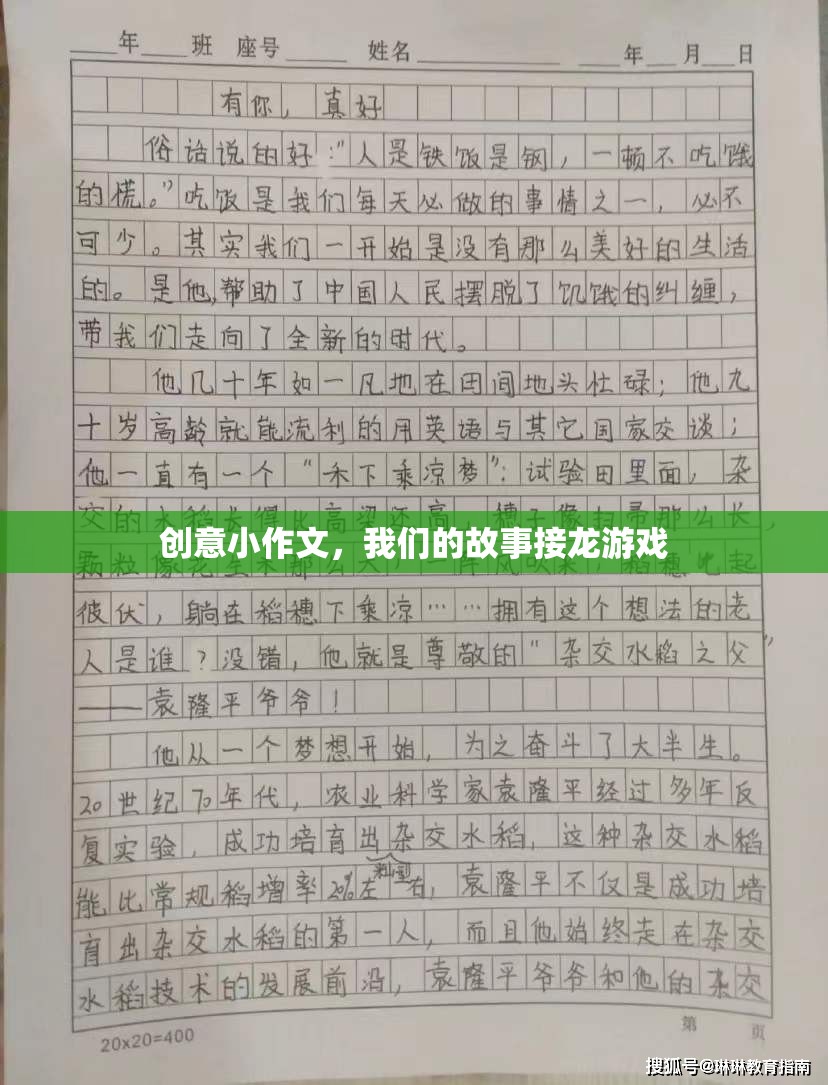 年 班 座号 姓名 年 月 日
有你，真好
俗话说的好："人是铁饭是钢，一顿不吃饿
的慌。"吃饭是我们每天必做的事情之一，必不
可少。其实我们一开始是没有那么美好的生活
的。是他，帮助了中国人民摆脱了饥饿的纠缠，
带我们走向了全新的时代。
他几十年如一凡地在田间地头忙碌；他九
十岁高龄就能流利的用英语与其它国家交谈；
他一直有一个"禾下乘凉梦"：试验田里面，杂
交的水稻长得比高粱还高，穗子像扫帚那么长，
创意小作文，我们的故事接龙游戏
彼伏，躺在稻穗下乘凉……拥有这个想法的老
人是谁？没错，他就是尊敬的"杂交水稻之父"
——袁隆平爷爷！
他从一个梦想开始，为之奋斗了大半生。
20世纪70年代，农业科学家袁隆平经过多年反
复实验，成功培育出杂交水稻，这种杂交水稻
能比常规稻增率20%左右，袁隆平不仅是成功培
育出杂交水稻的第一人，而且他始终走在杂交
水稻技术的发展前沿，袁隆平爷爷和他的杂交
20x20=400
第 页
搜狐号@琳琳教育指南